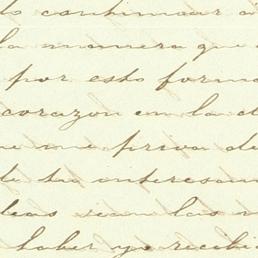 continuar a
la manera que
por esto forma
corazon en la d
e me priva de
de su interesan
leas sean las
haber yo recibi